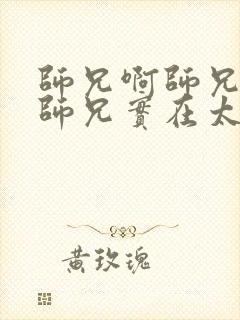 師兄啊師兄
師兄實在太
黃玫瑰